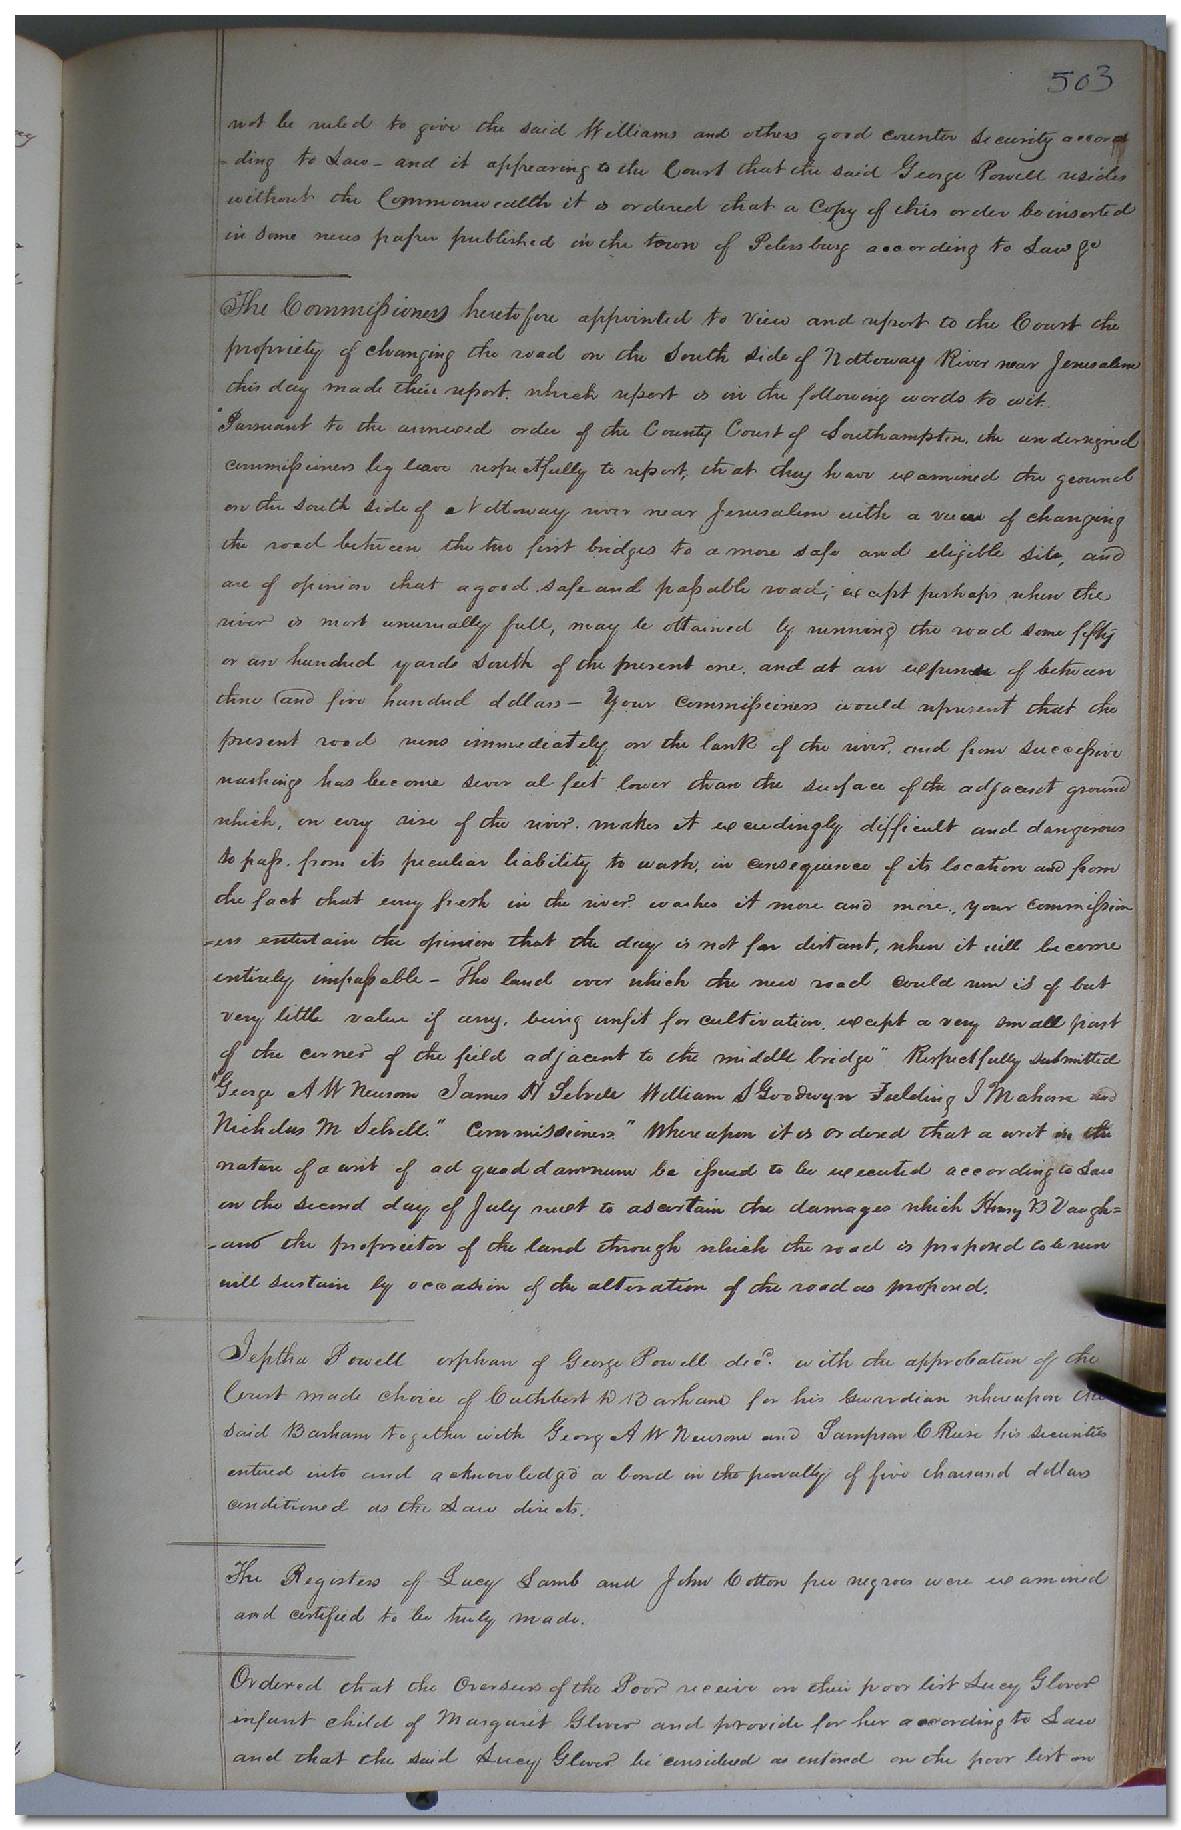 503
not be ruled to give the said Williams and others good counter security accor
-ding to Law - and it appearing to the Court that the said George Powell resides
without the Commonwealth it is ordered that a Copy of this order be inserted
in some news paper published in the town of Petersburg according to Law
The Commissioners heretofore appointed to view and report to the Court the
propriety of changing the road on the South side of Nottoway River near Jerusalem
this day made their report. which report is in the following words to wit.
"Pursuant to the annexed order of the County Court of Southampton, the undersigned
commissioners beg leave respectfully to report, that they have examined the ground
on the south side of Nottoway river near Jerusalem with a view of changing
the road between the two first bridges to a more safe and eligible site, and
are of opinion that a good safe and passable road; except perhaps when the
river is most unusually full, may be obtained by running the road some fifty
or an hundred yards South of the present one. and at an expense of between
three and five hundred dollars - Your commissioners would represent that the
present road runs immediately on the bank of the river. and from successive
washings has become sever al feet lower than the surface of the adjacent ground
which, on every rise of the river. makes it exceedingly difficult and dangerous
to pass. from its peculiar liability to wash, in consequence of its location and from
the fact that every fresh in the river washes it more and more, your commission
-ers entertain the opinion that the day is not far distant, when it will become
entirely impassable - The land over which the new road could run is of but
very little value if any, being unfit for cultivation, except a very small part
of the corner of the field adjacent to the middle bridge" Respectfully submitted
"George A W Newsom James H Sebrell William S Goodwyn Fielding J Mahone and
Nicholas M Sebrell." Commissioners" Whereupon it is ordered that a writ in the
nature of a writ of ad quod damnum be issued to be executed according to Law
on the second day of July next to ascertain the damages which Henry B Vaugh=
-an the proprietor of the land through which the road is proposed to be run
will sustain by occasion of the alteration of the road as proposed.
Jeptha Powell orphan of George Powell decd. with the approbation of the
Court made choice of Cuthbert D Barham for his Guardian whereupon the
said Barham together with George A W Newsom and Sampson C Reese his securities
entered into and acknowledged a bond in the penalty of five thousand dollars
conditioned as the Law directs.
The Registers of Lucy Lamb and John Cotton free negroes were examined
and certified to be truly made.
Ordered that the Overseers of the Poor receive on their poor list Lucy Glover
infant child of Margaret Glover and provide for her according to Law
and that the said Lucy Glover be considered as entered on the poor list on